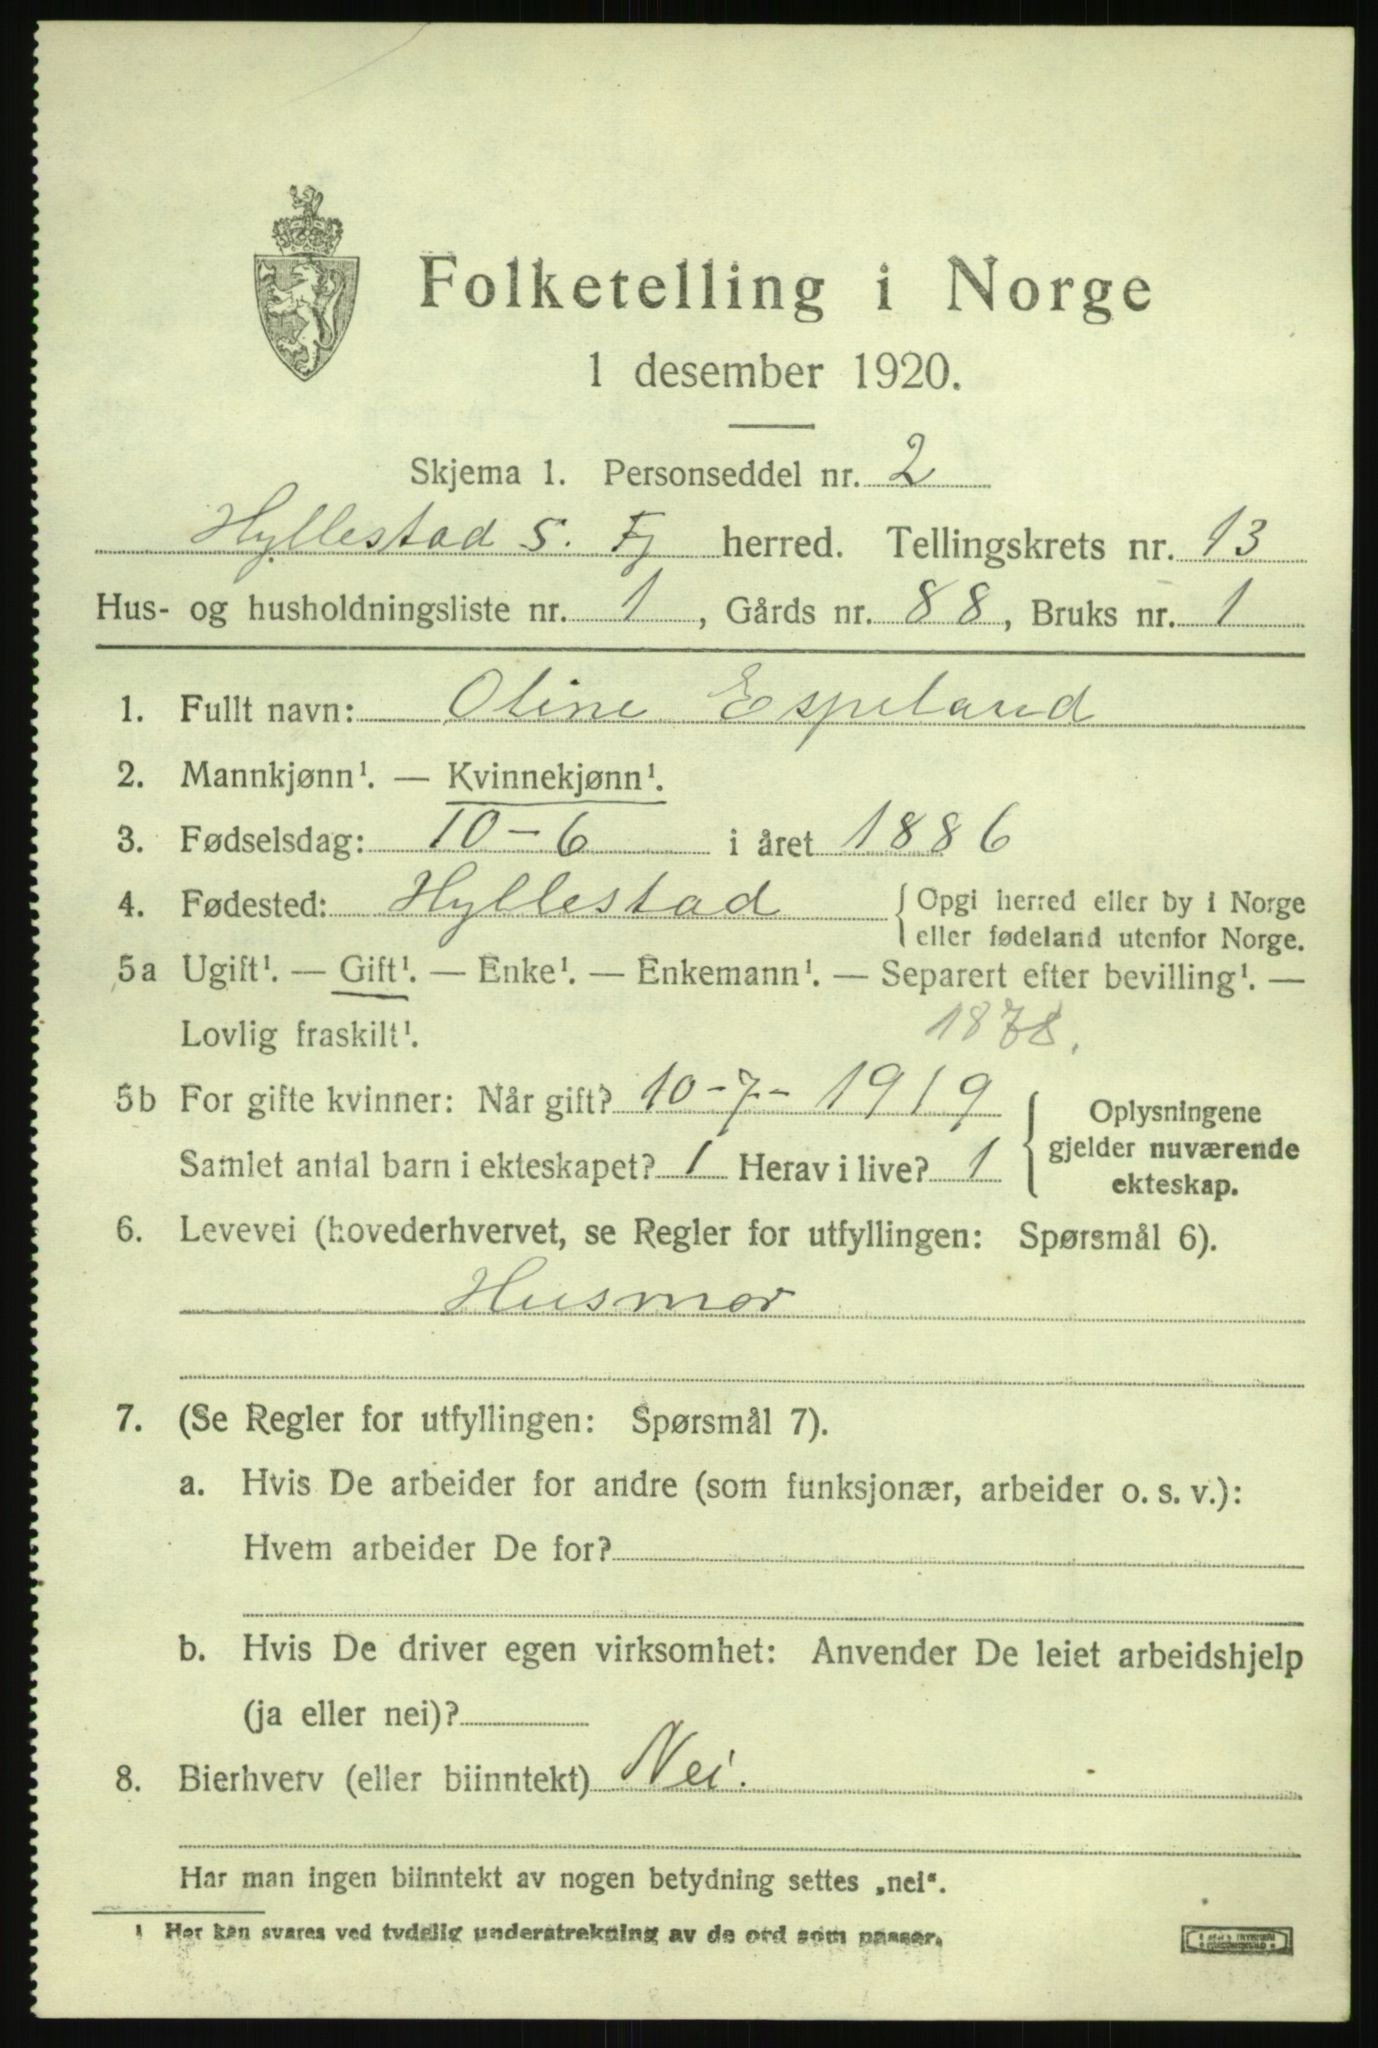 Folketelling i Norge
1 desember 1920.
Skjema 1. Personseddel nr. 2
Hyllestad S. Fj herred. Tellingskrets nr. 13
Hus- og husholdningsliste nr. 1, Gårds nr. 88, Bruks nr. 1
1. Fullt navn: Oline Espeland
2. Mannkjønn¹. — Kvinnekjønn¹.
3. Fødselsdag: 10-6 i året 1886
4. Fødested: Hyllestad { Opgi herred eller by i Norge
eller fødeland utenfor Norge.
5a Ugift¹. — Gift¹. — Enke¹. — Enkemann¹. — Separert efter bevilling¹. —
Lovlig fraskilt¹. 1878.
5b For gifte kvinner: Når gift? 10-7-1919
Samlet antal barn i ekteskapet? 1 Herav i live? 1
{ Oplysningene
gjelder nuværende
ekteskap.
6. Levevei (hovederhvervet, se Regler for utfyllingen: Spørsmål 6).
Husmor
7. (Se Regler for utfyllingen: Spørsmål 7).
a. Hvis De arbeider for andre (som funksjonær, arbeider o. s. v.):
Hvem arbeider De for?
b. Hvis De driver egen virksomhet: Anvender De leiet arbeidshjelp
(ja eller nei)?
8. Bierhverv (eller biinntekt) Nei.
Har man ingen biinntekt av nogen betydning settes „nei“.
¹ Her kan svares ved tydelig understrekning av de ord som passer.